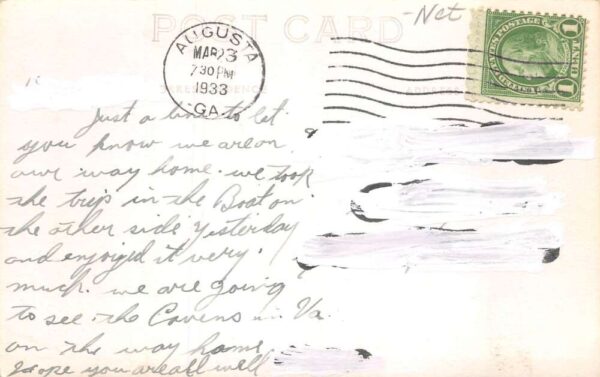 POST CARD
-Net
AUGUSTA
MAR 3
7 30 PM
1933
GA.
1
U.S. POSTAGE
1
CORRESPONDENCE
ADDRESS
Just a line to let
you know we are on
our way home. we took
the trip in the Boat on
the other side yesterday
and enjoyed it very.
much. we are going
to see the Caverns in Va.
on the way home
Hope you are all well